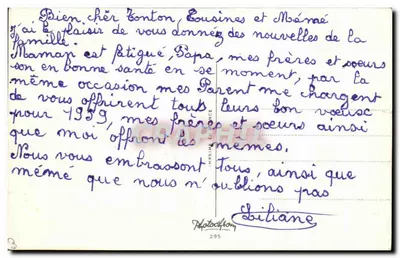 Bien chèr Tonton, Cousines et Mémé
j'ai le plaisir de vous donnez des nouvelles de la
famille.
Maman est fatigué, Papa, mes frères et soeurs
son en bonne santé en se moment, par la
même occasion mes Parent me chargent
de vous offrirent touts leurs bon voeux
pour 1959, mes frères et soeurs ainsi
que moi offront les mêmes.
Nous vous embrassont tous, ainsi que
mémé que nous n'oublions pas
Liliane
Photochrom
295